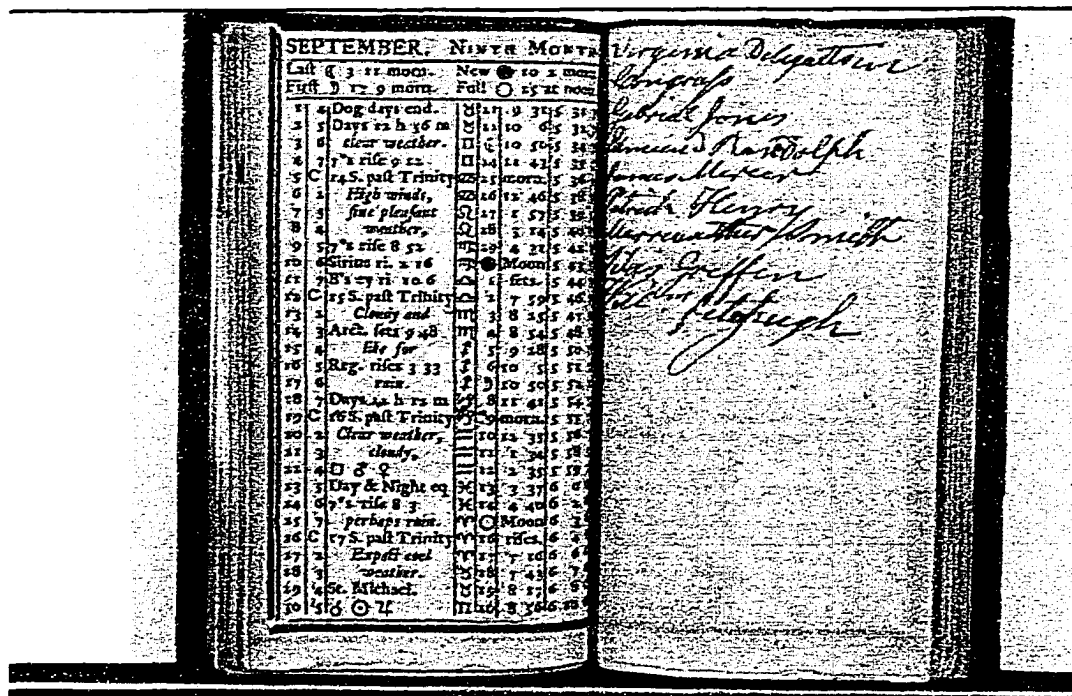 SEPTEMBER. NINTH MONTH
Laſt ☾ 3 11 morn. New ● 10 2 morn
Firſt ☽ 17 9 morn. Full ○ 25 noon
1 4 Dog days end. ♉ 11 9 31 5 31
2 5 Days 12 h 56 m ♉ 12 10 6 5 32
3 6 clear weather. ♊ 10 50 5 34
4 7 7*s riſe 9 12 ♊ 14 11 43 5 35
5 C 14 S. paſt Trinity ♋ 15 morn. 5 36
6 2 High winds, ♋ 16 12 46 5 38
7 3 fine pleaſant ♌ 17 1 57 5 39
8 4 weather, ♌ 18 3 14 5 40
9 5 7*s riſe 8 52 ♍ 19 4 31 5 42
10 6 Sirius ri. 2 16 ♍ ● Moon 5 43
11 7 B's ey ri. 10 6 ♎ 1 ſets. 5 44
12 C 15 S. paſt Trinity ♎ 2 7 59 5 46
13 2 Cloudy and ♏ 3 8 25 5 47
14 3 Arct. ſets 9 48 ♏ 4 8 54 5 48
15 4 like for ♐ 5 9 28 5 50
16 5 Reg. riſes 3 33 ♐ 6 10 5 5 51
17 6 rain. ♐ ☽ 10 50 5 52
18 7 Days 12 h 12 m ♑ 8 11 41 5 54
19 C 16 S. paſt Trinity ♑ 9 morn. 5 55
20 2 Clear weather, ♒ 10 12 35 5 56
21 3 cloudy, ♒ 11 1 34 5 58
22 4 □ ♂ ♀ ♒ 12 2 35 5 59
23 5 Day & Night eq ♓ 13 3 37 6
24 6 7*s riſe 8 3 ♓ 14 4 40 6 2
25 7 perhaps rain. ♈ ○ Moon 6 3
26 C 17 S. paſt Trinity ♈ 16 riſes. 6 4
27 2 Expect cool ♈ 17 7 16 6 6
28 3 weather. ♉ 18 7 43 6 7
29 4 St. Michael. ♉ 19 8 17 6 8
30 5 ☌ ☉ ♃ ♊ 20 8 56 6 10
Virginia Delegatts in
Congraſs
Gabriel Jones
Edmund Randolph
James Mercer
Patrick Henry
Merewather Smith
Griffen
Fitzhugh